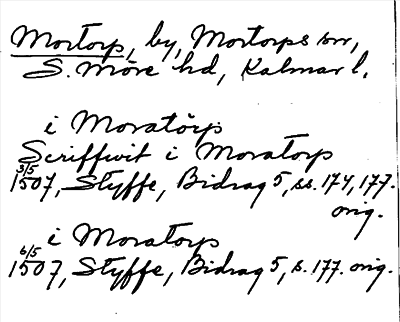 Mortorp, by, Mortorps sn,
S. Möre hd, Kalmar l.
i Moratörp
Scriffwit i Moratorp
3/5
1507, Styffe, Bidrag 5, ss. 174, 177.
orig.
i Moratorp
6/5
1507, Styffe, Bidrag 5, s. 177. orig.